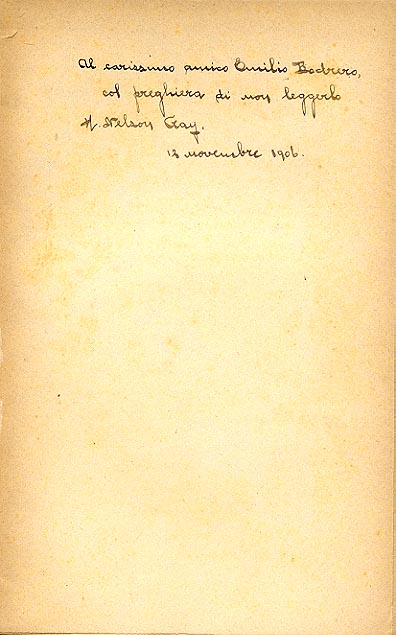 Al carissimo amico Emilio Bodrero,
col preghiera di non leggerlo
H. Nelson Gay.
13 novembre 1906.